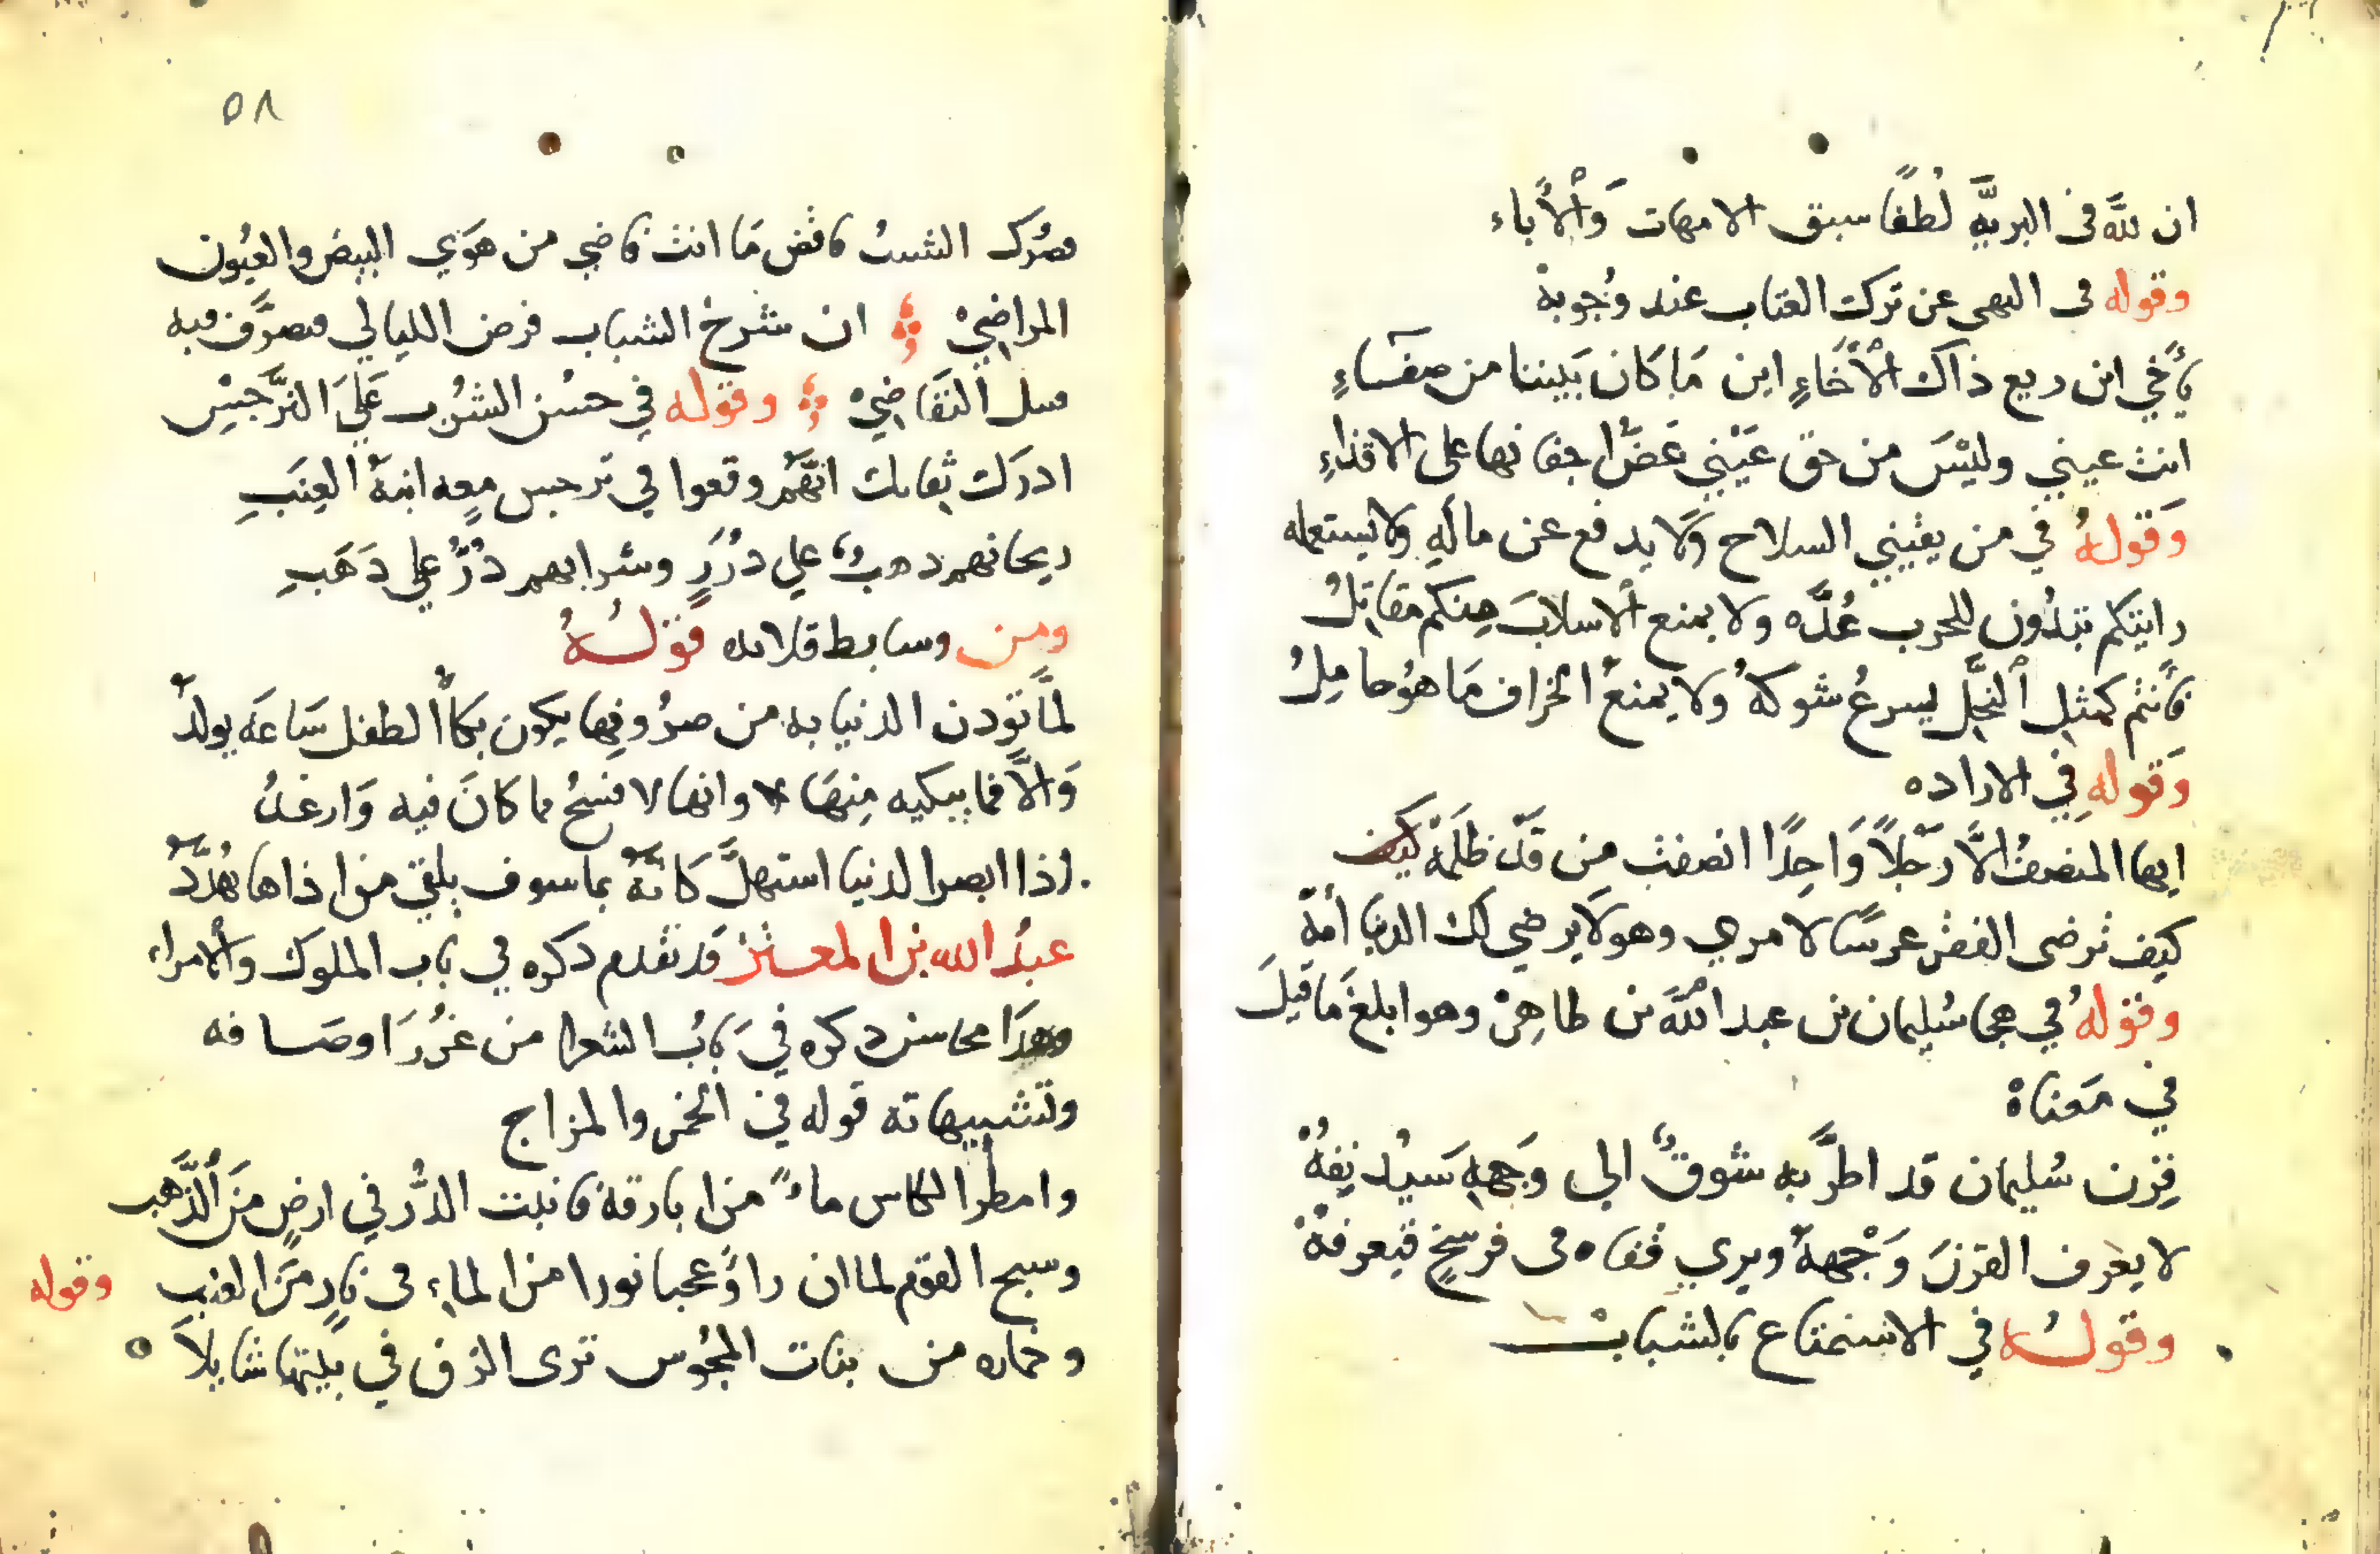 ان لله في البريه لُطفًا سبق الامهات وَالأباء
وقوله في النهى عن ترك العتاب عند وُجوبه
يأخي اين ريع ذاك الأخَاءِ اين مَا كان بَيننا من صفَاءِ
انت عيني وليْسَ من حق عَيْني غَضُّ اجفانها على الاقذاءِ
وَقولهُ في من يقتني السلاح وَلا يدفع عن مالهِ ولا يستعمله
رايتكم تبدُون للحرب عُدَّه ولا يمنع الاسلابَ منكم مقاتلُ
فأنتم كمثل النخل يسرعُ شوكهُ ولا يمنعُ الخراف مَا هوُ حاملُ
وَقوله فِي الاراده
ايها المنصفُ الَّا رَجلاً وَاحِدًا انصفت مِن قَد ظلَمهْ كيف
كيف ترضى الفقر عرسًا لامرىٍ وهو لا يرضي لك الدنيا أمهْ
وقولهُ في هجا سُليمان بن عبد اللهَ بن طاهِرْ وهو ابلغ مَا قيلَ
في مَعناهْ
قِرن سُليمان قد اطرَّ به شوقٌ الي وَجههِ سَيُدنِفهُ
لا يعَرف القرنَ وَجْههُ ويري قفاه في فرسخٍ فيعرفهْ
وقولهُ في الاستمتاع بالشباب
٥٨
الشيبُ فاقض مَا انت قاضي من هوَي البيض والعيُون
المراضيْ ان شرخ الشباب قرض الليالي فيه
التقَاضيْ وقوله في حسْن الشرُب عَلَى النَّرجسْ
ادرَك ثقاتك انَّهُم وقعوا في نرجس معهِ ابنهُ العِنَبِ
ريحانهم دهبٌ علي دُرَرٍ وشرابهم دُرٌّ علي دَهَبِ
ومن وسايط قلايده قوْلهُ
لمَّا تودن الدنيا به من صرُوفِها يكون بكأ الطفل سَاعَه يولدُ
وَالَّا فما يبكيه مِنهَا وانها لا فسحُ مما كانَ فيه وَارغدُ
اذا ابصر الدنيا استهلَّ كَانَّهُ بما سوف يلقي من اذاها يُهدَّدُ
عبدُ الله بن المعتز قد تقدم دكره في باب الملوك والأمراء
وهذَا محاسن دكره فيَ بابُ الشعرا من غرُرَ اوصافه
وتشبيهاته قوله في الخمر والمزاج
وامطر الكاس ماءً من ابارقهِ فانبتت الدُّر في ارضٍ منَ الذَّهب
وسبح القوم لما ان راوُ عجبا نورا من الماءِ في نارٍ منَ العنبِ وقوله
وخماره من بنات المجُوس ترى الزق في بيتها شايلاَ